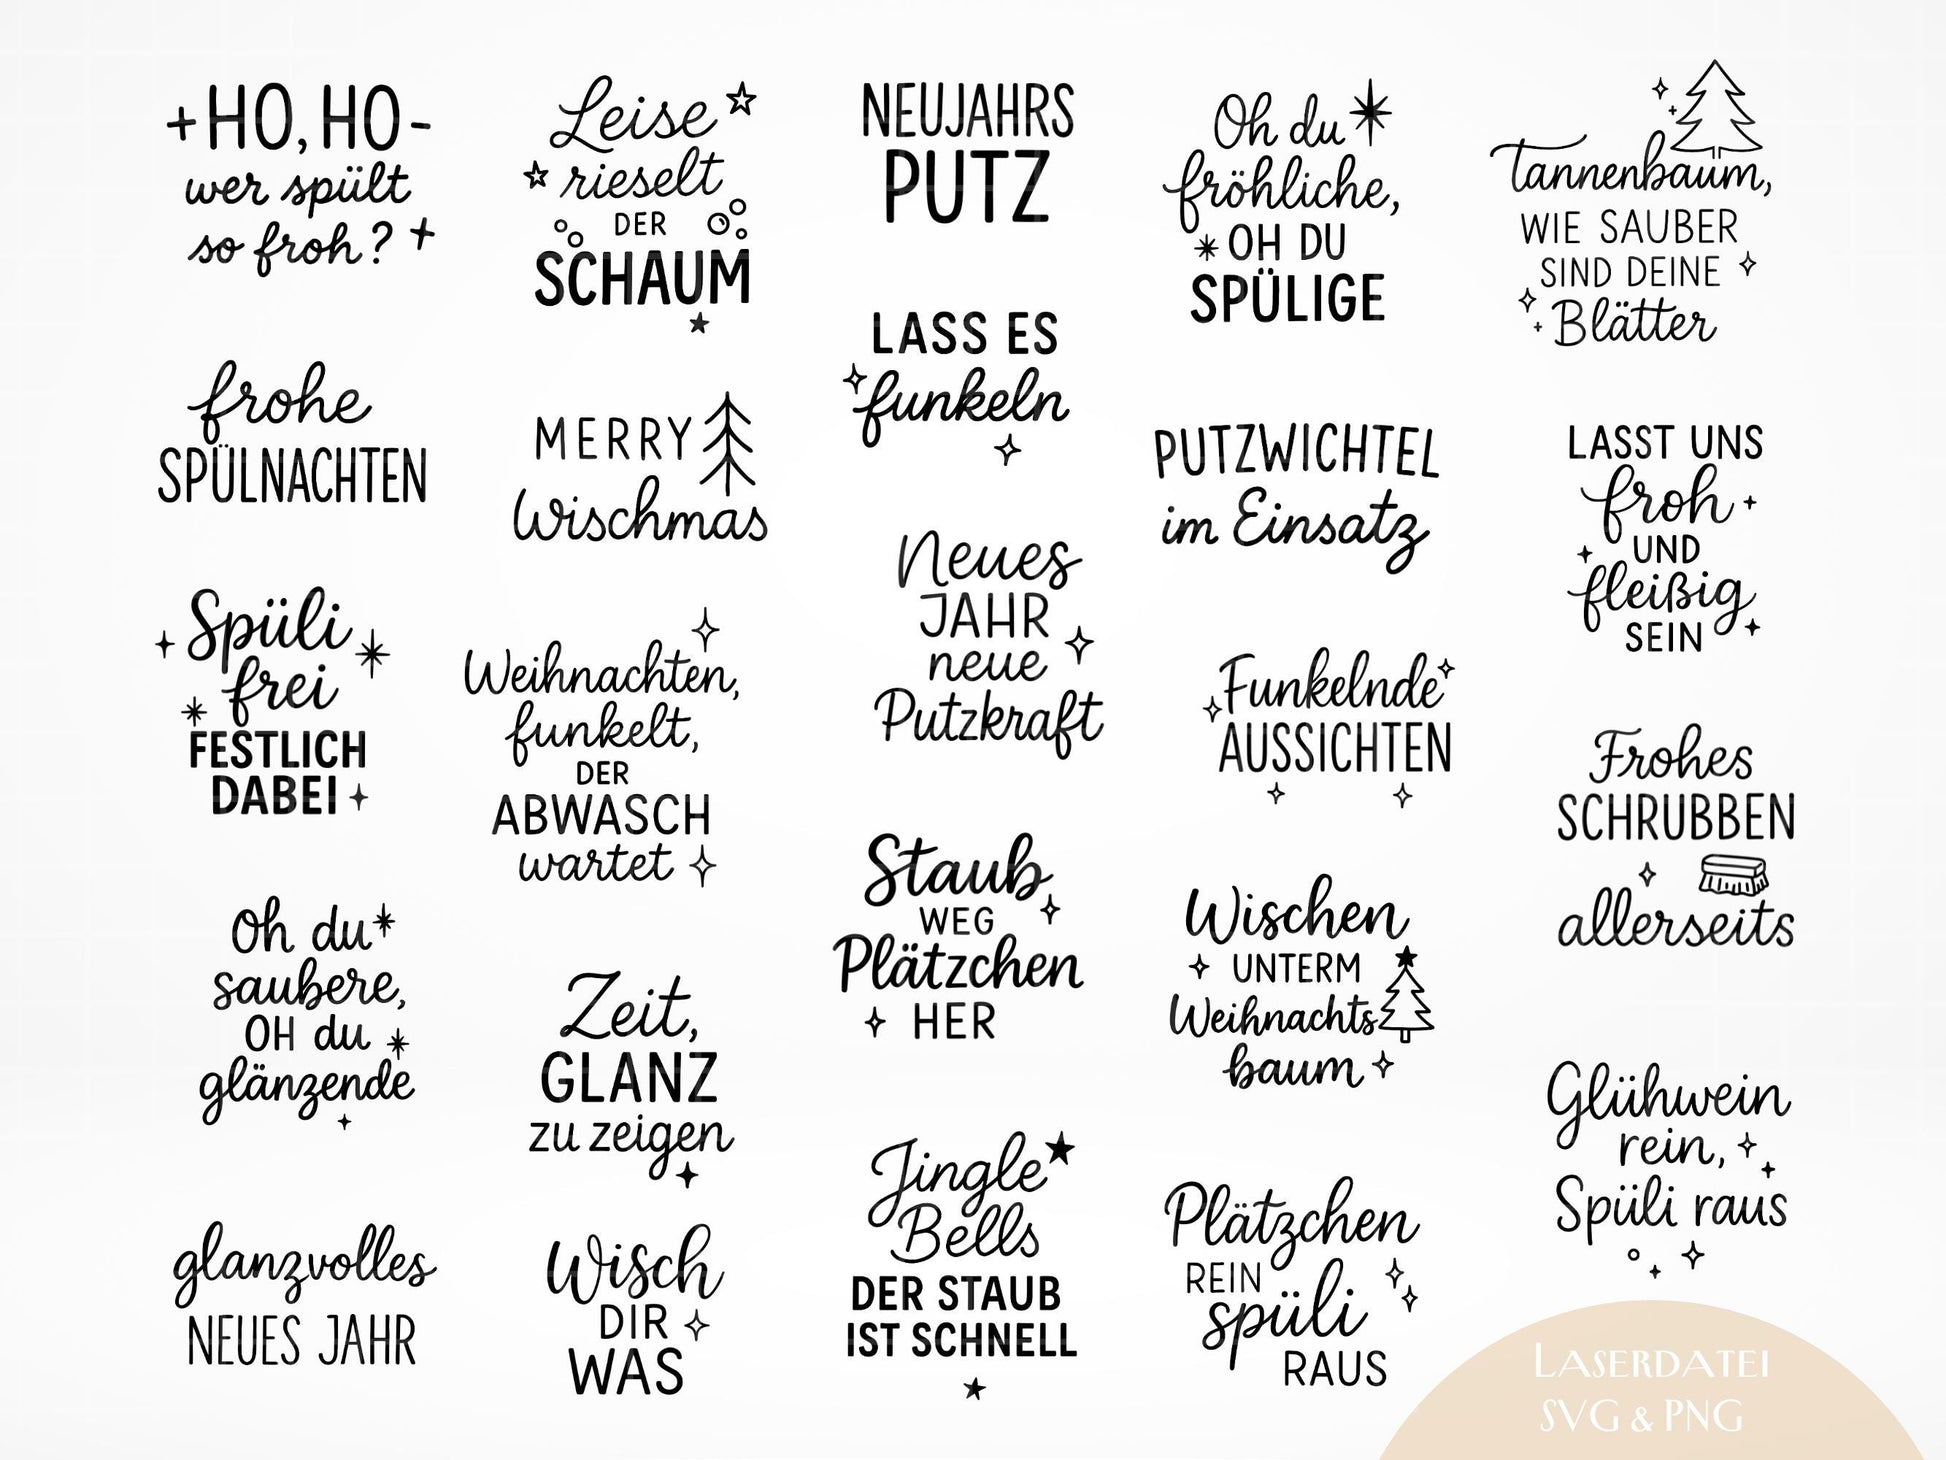 HO, HO -
wer spült
so froh?
frohe
SPÜLNACHTEN
Spüli
frei
FESTLICH
DABEI
Oh du
saubere,
OH du
glänzende
glanzvolles
NEUES JAHR
Leise
rieselt
DER
SCHAUM
MERRY
Wischmas
Weihnachten,
funkelt,
DER
ABWASCH
wartet
Zeit,
GLANZ
zu zeigen
Wisch
DIR
WAS
NEUJAHRS
PUTZ
LASS ES
funkeln
Neues
JAHR
neue
Putzkraft
Staub
WEG
Plätzchen
HER
Jingle
Bells
DER STAUB
IST SCHNELL
Oh du
fröhliche,
OH DU
SPÜLIGE
PUTZWICHTEL
im Einsatz
Funkelnde
AUSSICHTEN
Wischen
UNTERM
Weihnachts
baum
Plätzchen
REIN
spüli
RAUS
Tannenbaum,
WIE SAUBER
SIND DEINE
Blätter
LASST UNS
froh
UND
fleißig
SEIN
Frohes
SCHRUBBEN
allerseits
Glühwein
rein,
Spüli raus
LASERDATEI
SVG & PNG